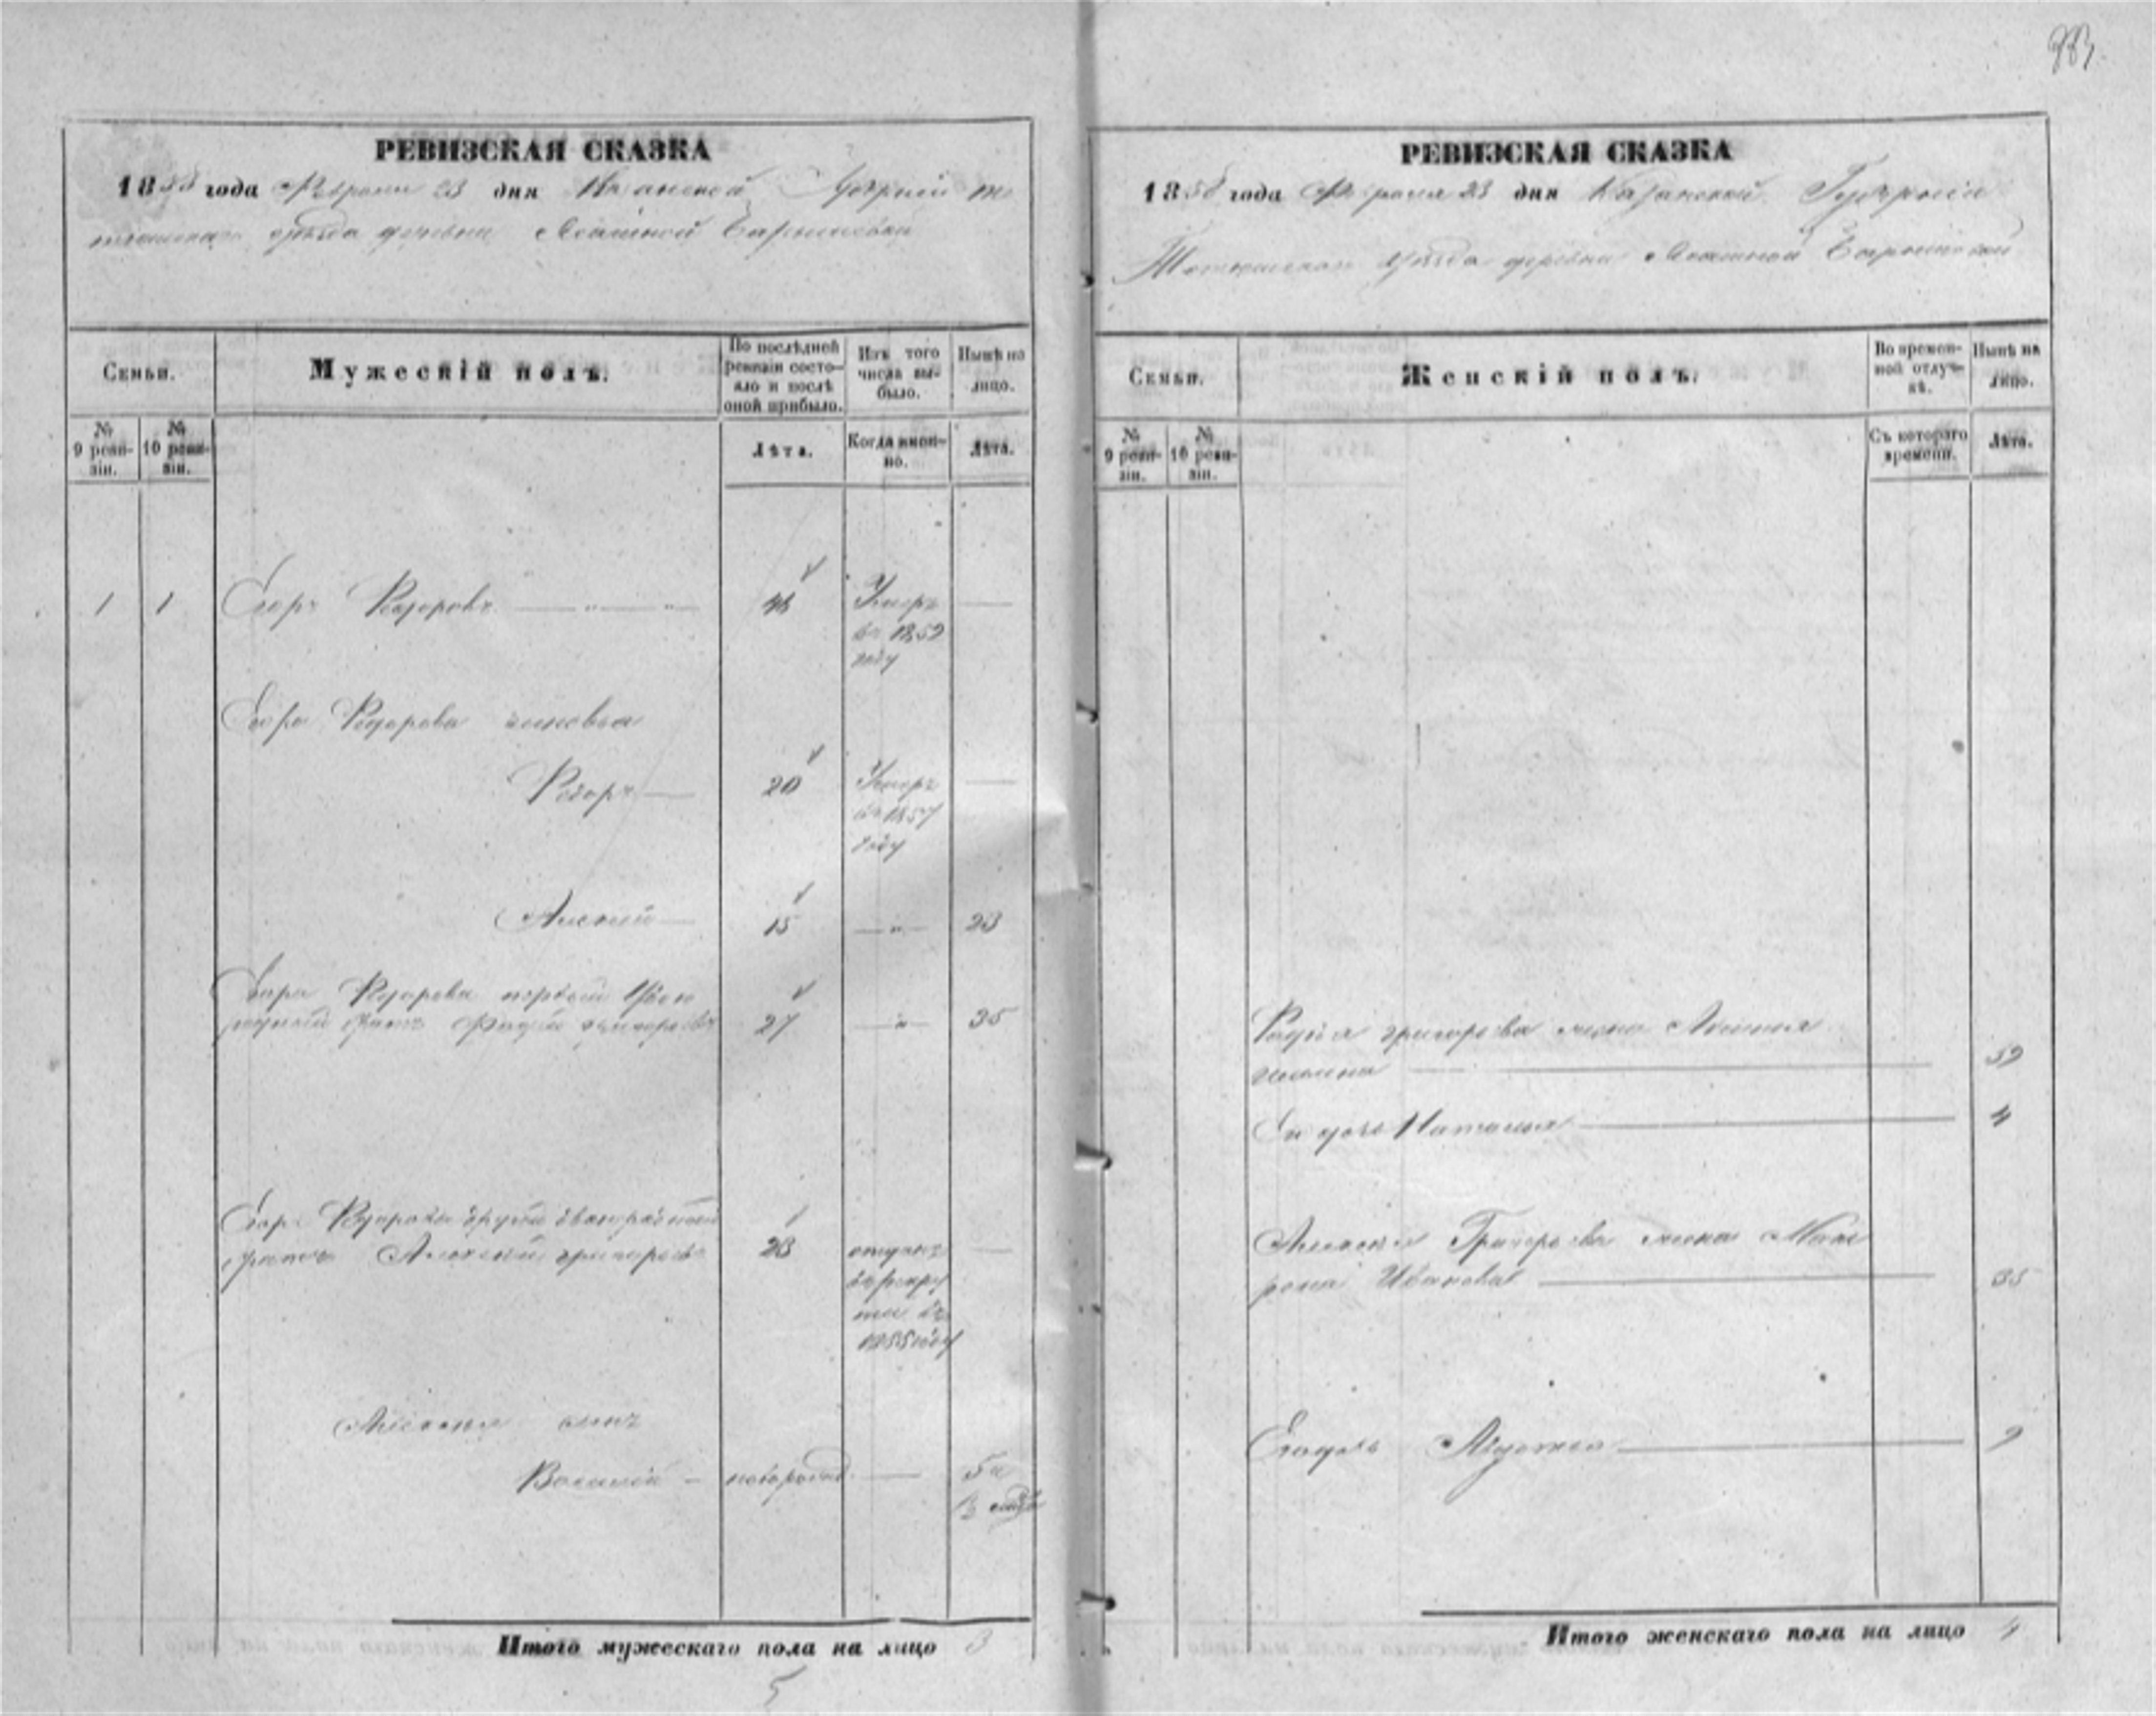 283.
РЕВИЗСКАЯ СКАЗКА
1858 года Февраля 23 дня Казанской Губернiи Те
тюшскаго уѣзда деревни
Семьи.
Мужескiй полъ.
По послѣдней ревизiи состо-
яло и послѣ оной прибыло.
Изъ того числа вы-
было.
Нынѣ на лицо.
№ 9 реви-
зiи.
№ 10 реви-
зiи.
Лѣта.
Когда имен-
но.
Лѣта.
1 1 Егоръ Федоровъ 48 Умеръ
въ 1852
году
Егора Федорова сыновья
Федоръ 20 Умеръ
въ 1857
году
Алексѣй 15 23
Егора Федорова первой двою
родный братъ Фадѣй Григорьевъ 27 35
Егора Федорова другой двоюродный
братъ Алексѣй Григорьевъ 28 отданъ
въ рекру
ты въ
1855 году
Алексѣя сынъ
Василiй новорожд. 5 и
½ мѣсяц
Итого мужескаго пола на лицо 3
5
РЕВИЗСКАЯ СКАЗКА
1858 года Февраля 23 дня Казанской Губернiи
Тетюшскаго уѣзда деревни
Семьи.
Женскiй полъ.
Во времен-
ной отлуч-
кѣ.
Нынѣ на лицо.
№ 9 реви-
зiи.
№ 10 реви-
зiи.
Съ котораго времени.
Лѣта.
Фадѣя Григорьева жена Аксинья
39
Ея дочь Наталья 4
Алексѣя Григорьева жена Мат
рона Иванова 35
Его дочь Авдотья 9
Итого женскаго пола на лицо 4